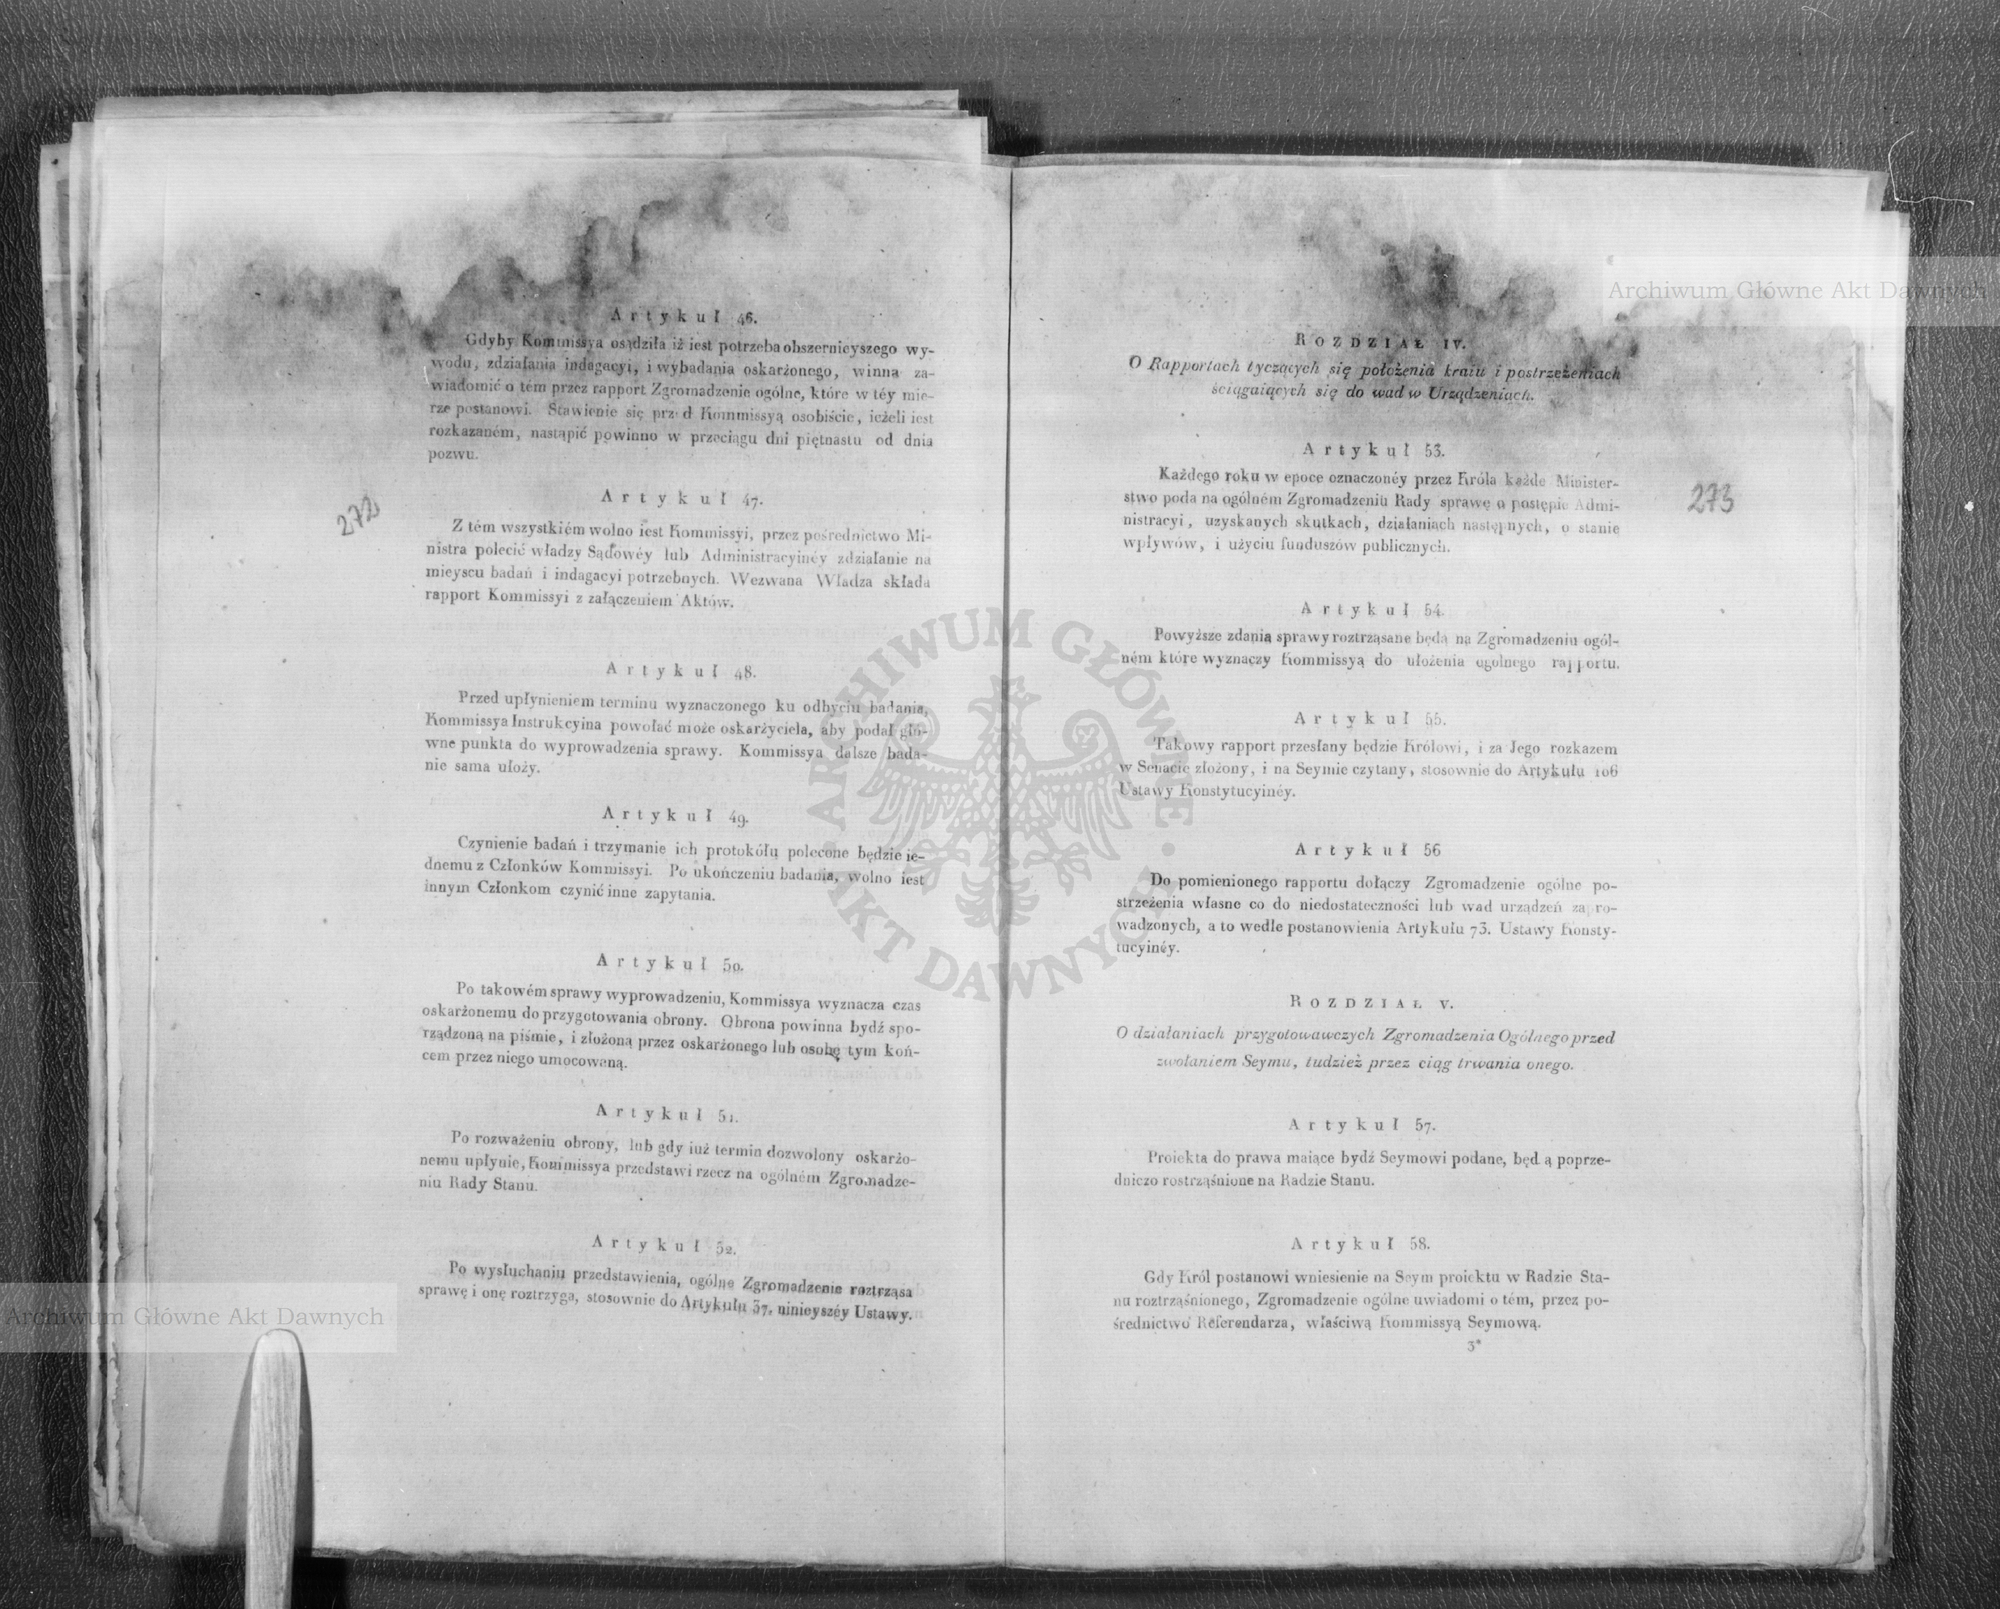 Artykuł 46.
Gdyby Kommissya osądziła iż iest potrzeba obszernieyszego wy-
wodu, zdziałania indagacyi, i wybadania oskarżonego, winna za-
wiadomić o tém przez rapport Zgromadzenie ogólne, które w téy mie-
rze postanowi. Stawienie się przed Kommissyą osobiście, ieżeli iest
rozkazaném, nastąpić powinno w przeciągu dni piętnastu od dnia
pozwu.
272
Artykuł 47.
Z tém wszystkiém wolno iest Kommissyi, przez pośrednictwo Mi-
nistra polecić władzy Sądowéy lub Administracyinéy zdziałanie na
mieyscu badań i indagacyi potrzebnych. Wezwana Władza składa
rapport Kommissyi z załączeniem Aktów.
Artykuł 48.
Przed upłynieniem terminu wyznaczonego ku odbyciu badania,
Kommissya Instrukcyina powołać może oskarżyciela, aby podał głó-
wne punkta do wyprowadzenia sprawy. Kommissya dalsze bada-
nie sama ułoży.
Artykuł 49.
Czynienie badań i trzymanie ich protokółu polecone będzie ie-
dnemu z Członków Kommissyi. Po ukończeniu badania, wolno iest
innym Członkom czynić inne zapytania.
Artykuł 50.
Po takowém sprawy wyprowadzeniu, Kommissya wyznacza czas
oskarżonemu do przygotowania obrony. Obrona powinna bydź spo-
rządzoną na piśmie, i złożoną przez oskarżonego lub osobę tym koń-
cem przez niego umocowaną.
Artykuł 51.
Po rozważeniu obrony, lub gdy iuż termin dozwolony oskarżo-
nemu upłynie, Kommissya przedstawi rzecz na ogólném Zgromadze-
niu Rady Stanu.
Artykuł 52.
Po wysłuchaniu przedstawienia, ogólne Zgromadzenie roztrząsa
sprawę i onę roztrzyga, stosownie do Artykułu 37. ninieyszéy Ustawy.
ROZDZIAŁ IV.
O Rapportach tyczących się położenia kraiu i postrzeżeniach
ściągaiących się do wad w Urządzeniach.
Artykuł 53.
Każdego roku w epoce oznaczonéy przez Króla każde Minister-
stwo poda na ogólném Zgromadzeniu Rady sprawę o postępie Admi-
nistracyi, uzyskanych skutkach, działaniach następnych, o stanie
wpływów, i użyciu funduszów publicznych.
273
Artykuł 54.
Powyższe zdania sprawy roztrząsane będą na Zgromadzeniu ogól-
ném które wyznaczy Kommissyą do ułożenia ogolnego rapportu.
Artykuł 55.
Takowy rapport przesłany będzie Królowi, i za Jego rozkazem
w Senacie złożony, i na Seymie czytany, stosownie do Artykułu 106
Ustawy Konstytucyinéy.
Artykuł 56
Do pomienionego rapportu dołączy Zgromadzenie ogólne po-
strzeżenia własne co do niedostateczności lub wad urządzeń zapro-
wadzonych, a to wedle postanowienia Artykułu 73. Ustawy Konsty-
tucyinéy.
ROZDZIAŁ V.
O działaniach przygotowawczych Zgromadzenia Ogólnego przed
zwołaniem Seymu, tudzież przez ciąg trwania onego.
Artykuł 57.
Proiekta do prawa maiące bydź Seymowi podane, będą poprze-
dniczo rostrząśnione na Radzie Stanu.
Artykuł 58.
Gdy Król postanowi wniesienie na Seym proiektu w Radzie Sta-
nu roztrząśnionego, Zgromadzenie ogólne uwiadomi o tém, przez po-
średnictwo Referendarza, właściwą Kommissyą Seymową.
3*
Archiwum Główne Akt Dawnych
Archiwum Główne Akt Dawnych
ARCHIWUM GŁÓWNE · AKT DAWNYCH ·